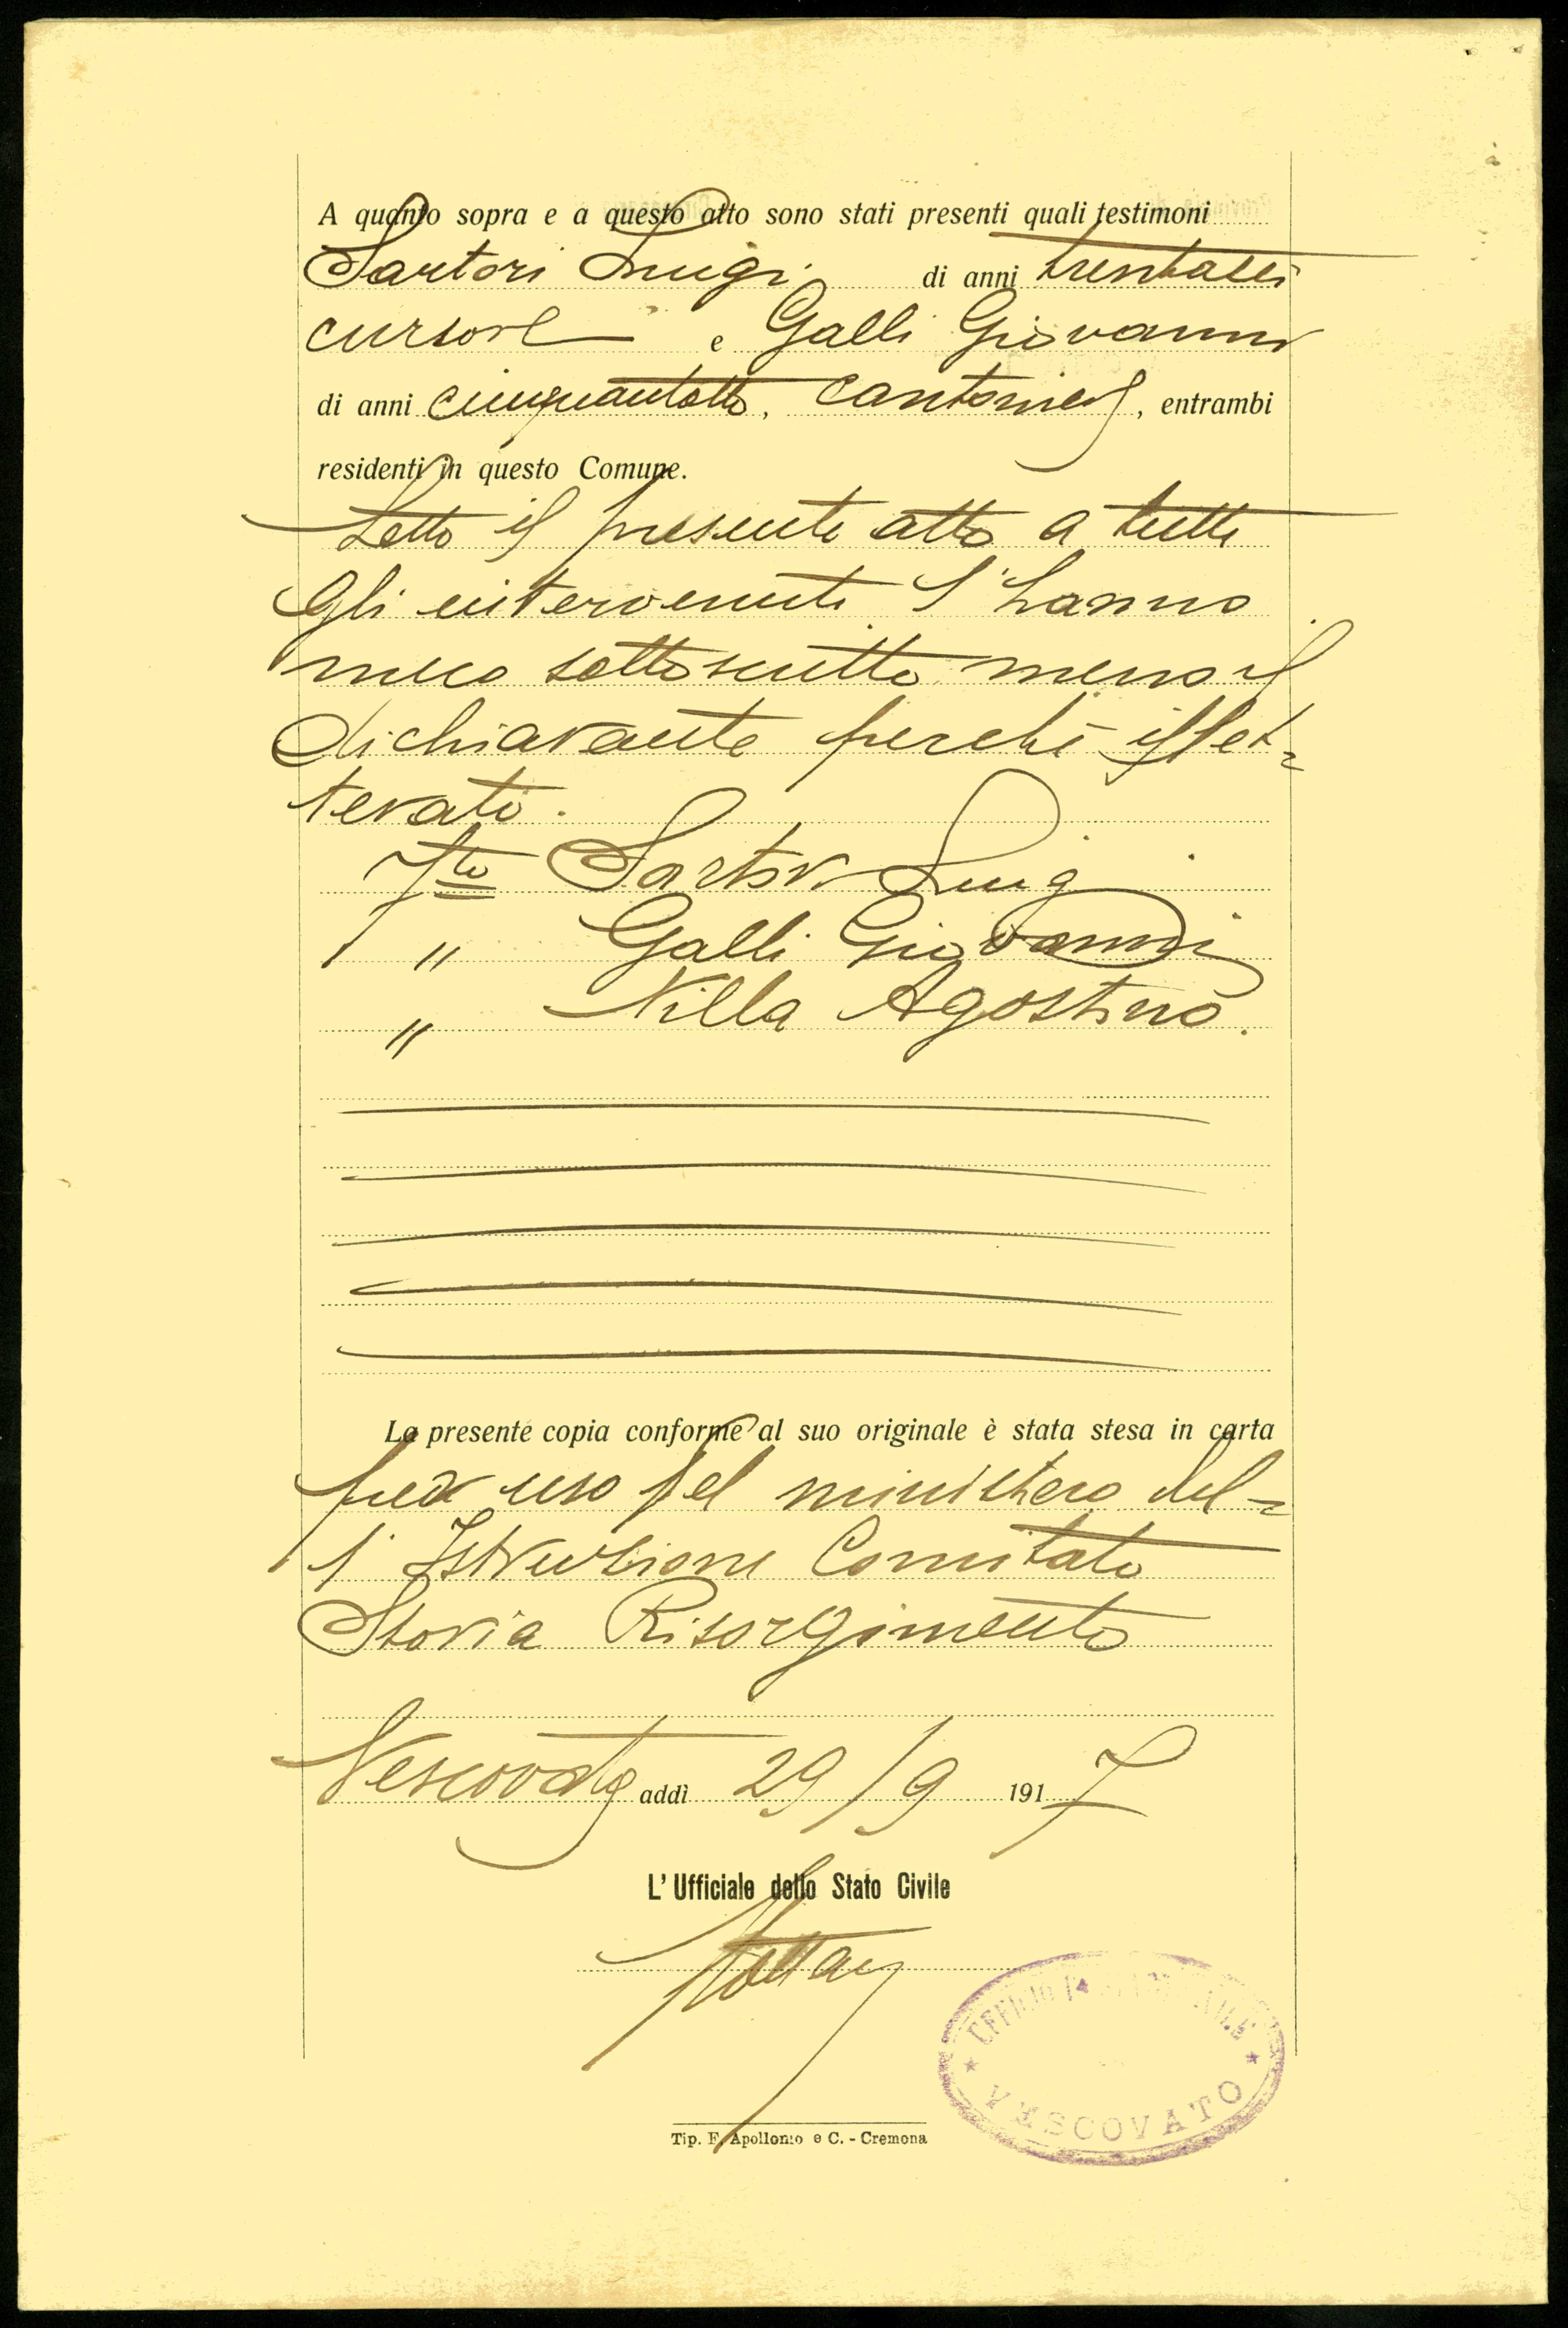 A quanto sopra e a questo atto sono stati presenti quali testimoni
Sartori Luigi di anni trentasei
cursore e Galli Giovanni
di anni cinquantotto, cantoniere, entrambi
residenti in questo Comune.
Letto il presente atto a tutti
gli intervenuti l'hanno
meco sottoscritto meno il
dichiarante perché illet=
terato.
Fto Sartori Luigi
" Galli Giovanni
" Villa Agostino.
La presente copia conforme al suo originale è stata stesa in carta
per uso del ministero del=
l'Istruzione Comitato
Storia Risorgimento
Vescovato addì 29/9 1917
L'Ufficiale dello Stato Civile
UFFICIO
VESCOVATO
Tip. F. Apollonio e C. - Cremona